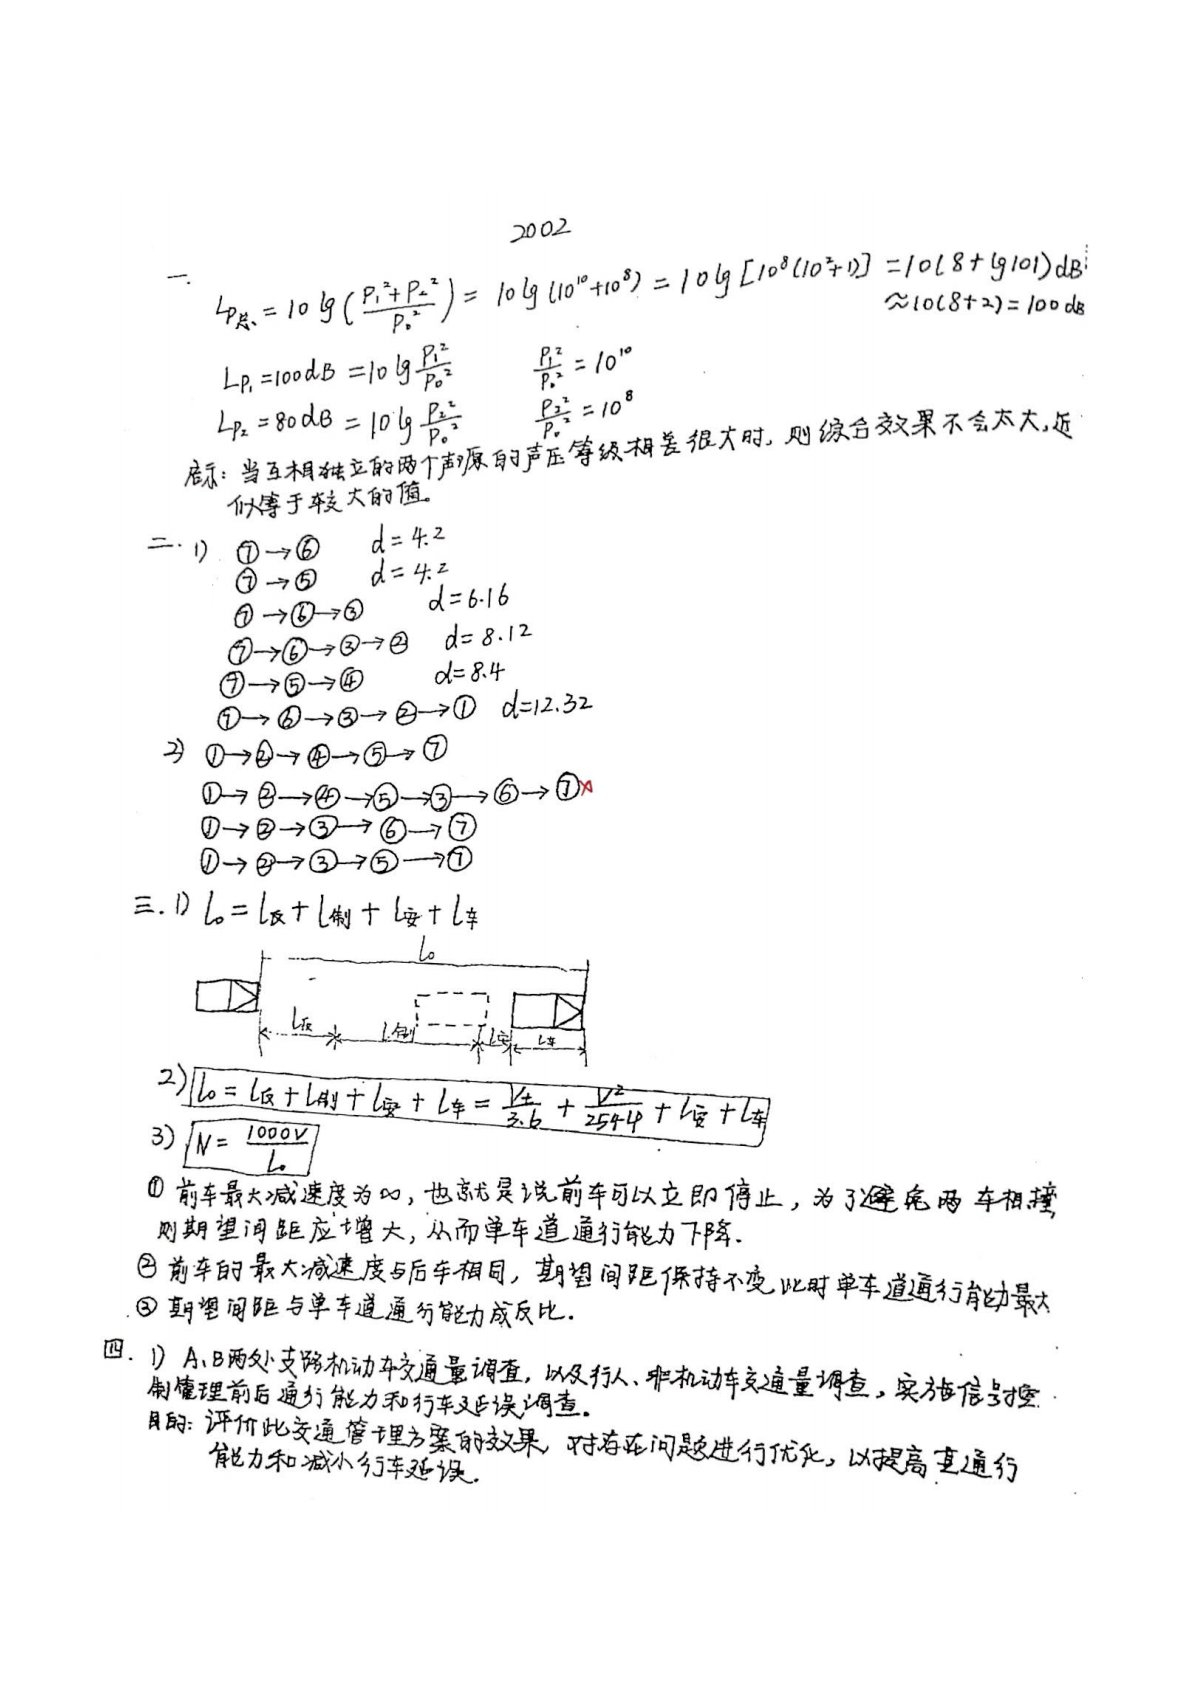 2002
一.
Lp总 = 10 lg (P₁²+P₂² / P₀²) = 10 lg (10¹⁰+10⁸) = 10 lg [10⁸(10²+1)] = 10(8+lg101) dB
≈10(8+2)=100 dB
Lp₁ =100dB =10 lg P₁²/P₀²  P₁²/P₀² = 10¹⁰
Lp₂ = 80dB = 10 lg P₂²/P₀²  P₂²/P₀² = 10⁸
启示: 当互相独立的两个声源的声压等级相差很大时, 则综合效果不会太大,近
似等于较大的值。
二. 1) ⑦→⑥ d = 4.2
⑦→⑤ d = 4.2
⑦→⑥→③ d=6.16
⑦→⑥→③→② d= 8.12
⑦→⑤→④ d= 8.4
⑦→⑥→③→②→① d=12.32
2) ①→②→④→⑤→⑦
①→②→④→⑤→③→⑥→⑦×
①→②→③→⑥→⑦
①→②→③→⑤→⑦
三. 1) L₀ = L反 + L制 + L安 + L车
L₀
L反 L制 L安 L车
2) L₀ = L反 + L制 + L安 + L车 = Vt/3.6 + V²/254φ + L安 + L车
3) N = 1000V/L₀
① 前车最大减速度为∞, 也就是说前车可以立即停止, 为了避免两车相撞
则期望间距应增大, 从而单车道通行能力下降.
② 前车的最大减速度与后车相同, 期望间距保持不变,此时单车道通行能力最大
③ 期望间距与单车道通行能力成反比.
四. 1) A、B两处支路机动车交通量调查, 以及行人、非机动车交通量调查, 实施信号控
制管理前后通行能力和行车延误调查。
目的: 评价此交通管理方案的效果, 对存在问题进行优化, 以提高其通行
能力和减小行车延误.